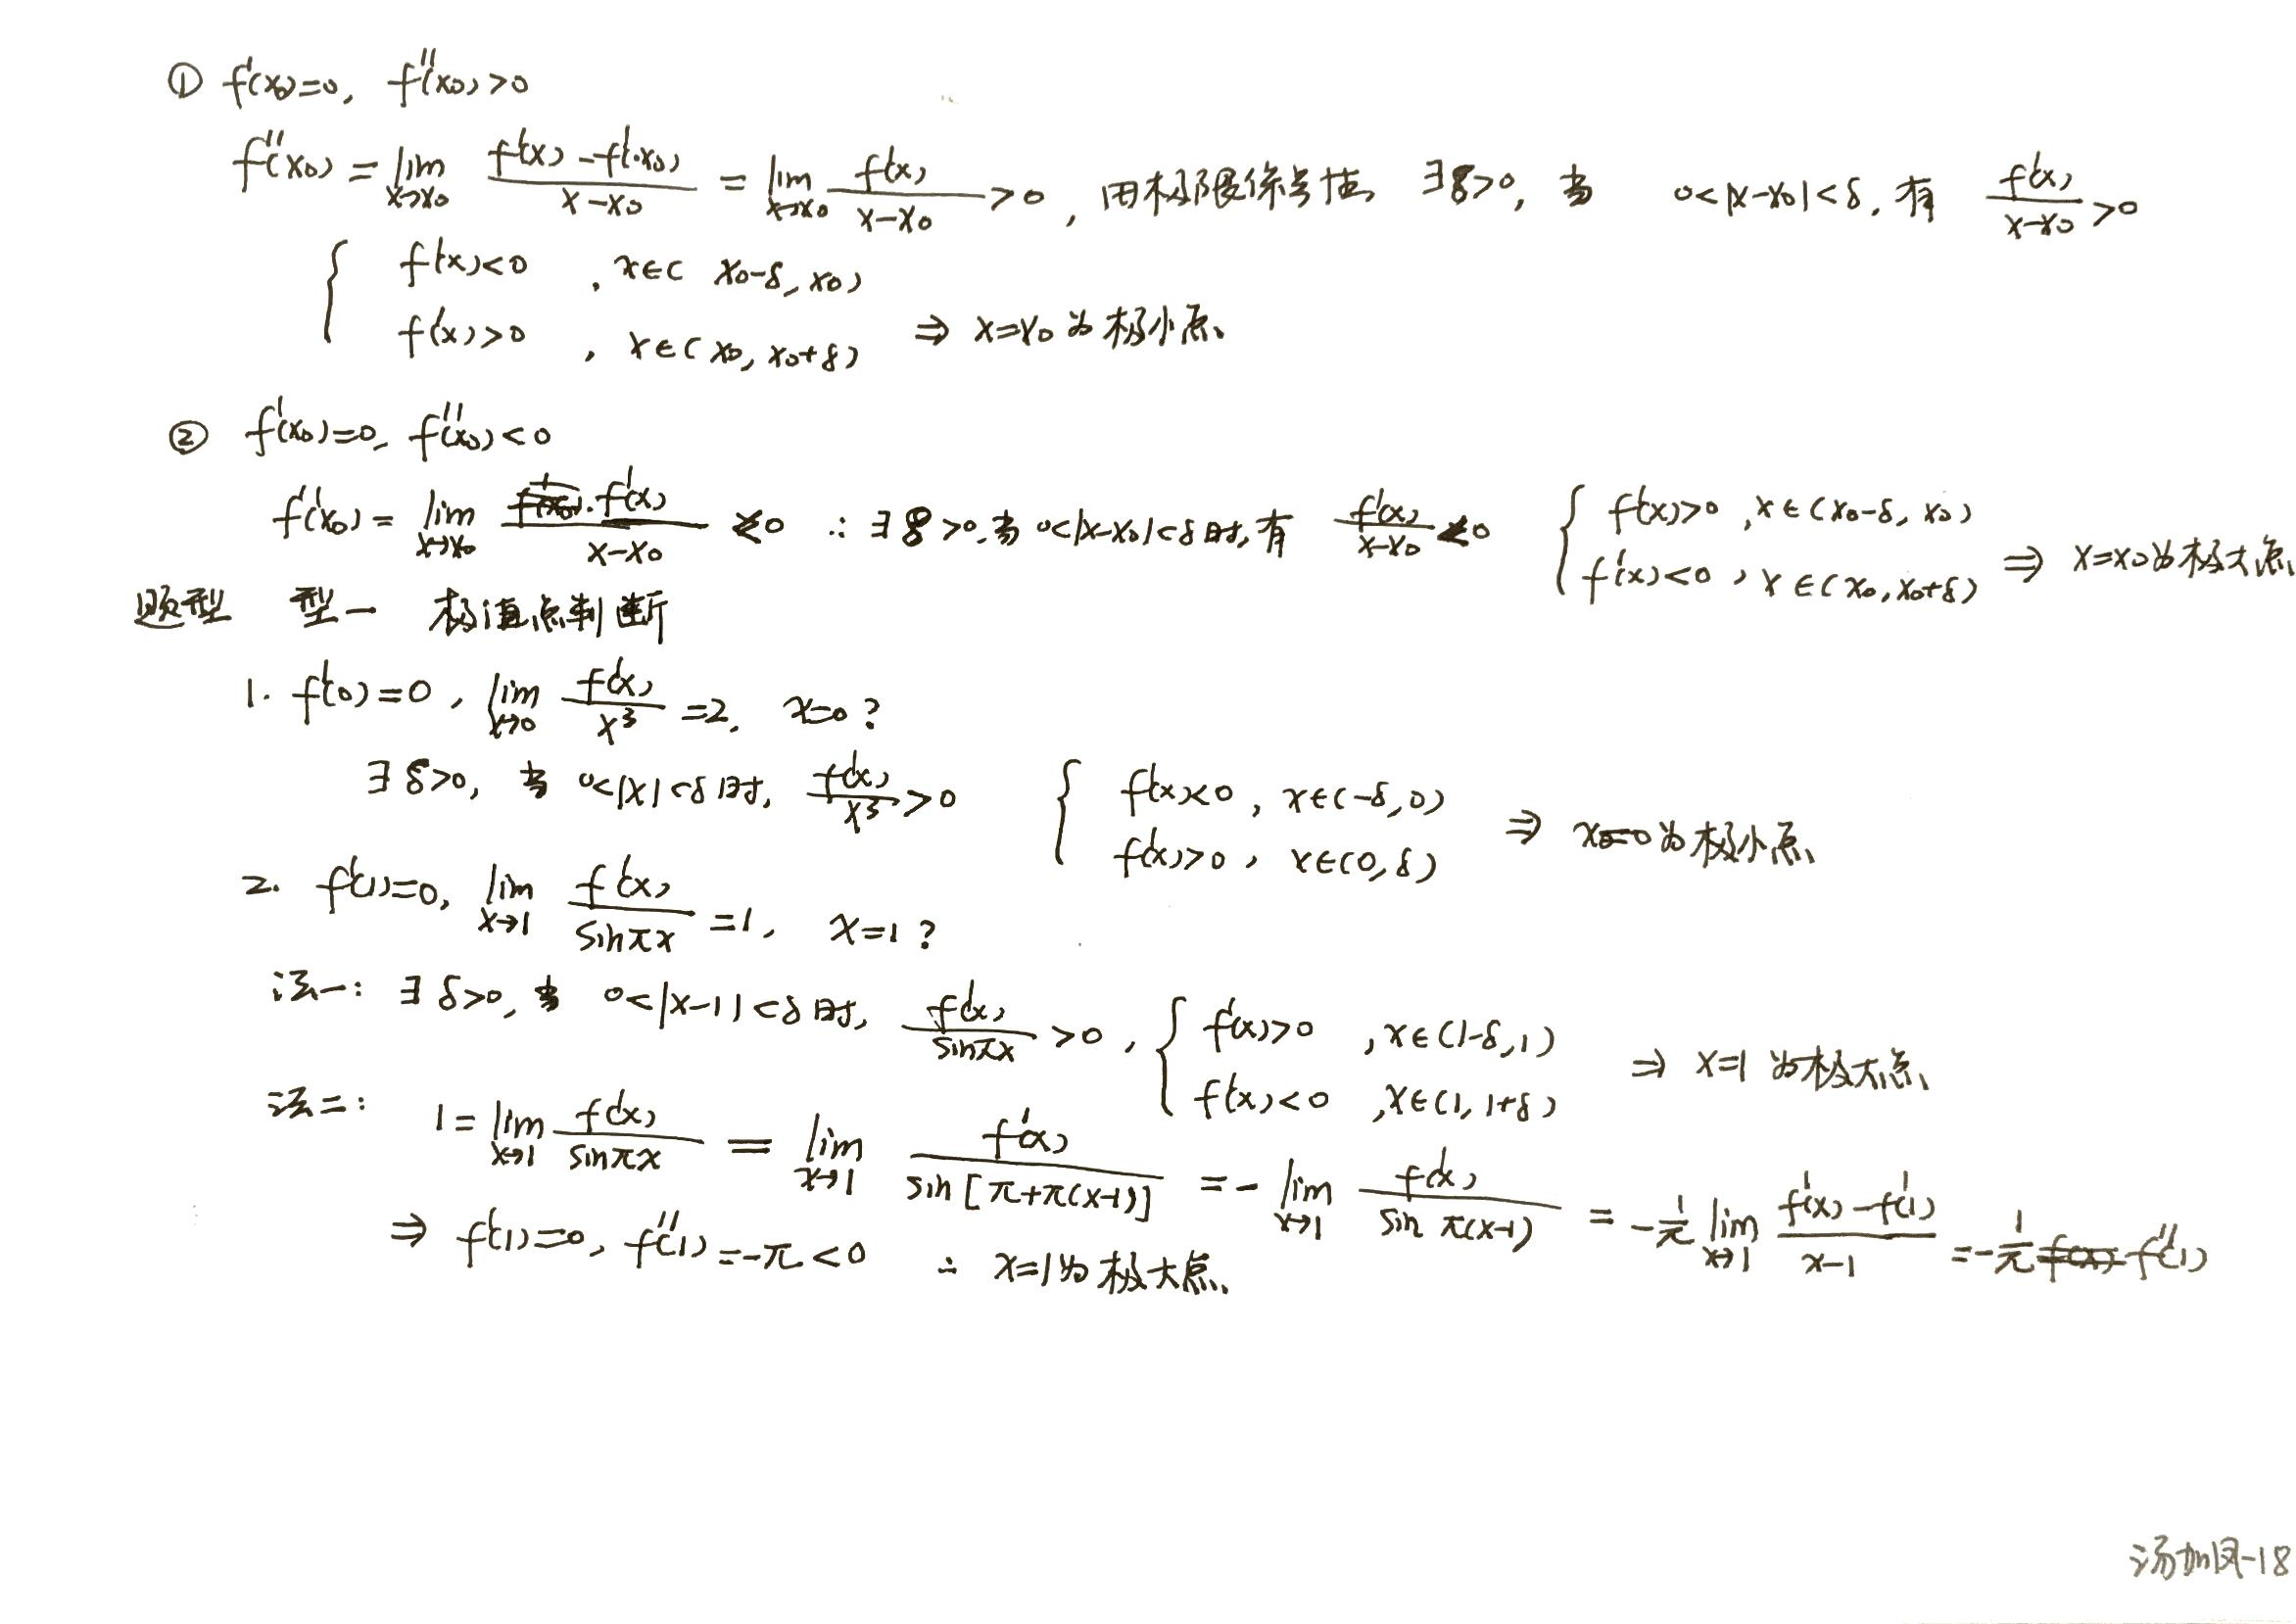 ① f'(x₀)=0, f''(x₀)>0
f''(x₀) = lim_{x→x₀} (f'(x)-f'(x₀))/(x-x₀) = lim_{x→x₀} f'(x)/(x-x₀) >0, 由极限保号性, ∃δ>0, 当 0<|x-x₀|<δ, 有 f'(x)/(x-x₀) >0
{ f'(x)<0 , x∈(x₀-δ, x₀)
f'(x)>0 , x∈(x₀, x₀+δ) ⇒ x=x₀为极小点
② f'(x₀)=0, f''(x₀)<0
f''(x₀) = lim_{x→x₀} f'(x)/(x-x₀) <0 ∴ ∃δ>0, 当 0<|x-x₀|<δ时, 有 f'(x)/(x-x₀) <0 { f'(x)>0, x∈(x₀-δ, x₀)
f'(x)<0, x∈(x₀, x₀+δ) ⇒ x=x₀为极大点
题型 型一 极值点判断
1. f'(0)=0, lim_{x→0} f'(x)/x³ =2, x=0?
∃δ>0, 当 0<|x|<δ时, f'(x)/x³ >0 { f'(x)<0, x∈(-δ,0)
f'(x)>0, x∈(0,δ) ⇒ x=0为极小点
2. f'(1)=0, lim_{x→1} f'(x)/sinπx =1, x=1?
法一: ∃δ>0, 当 0<|x-1|<δ时, f'(x)/sinπx >0, { f'(x)>0 , x∈(1-δ,1)
f'(x)<0 , x∈(1,1+δ) ⇒ x=1 为极大点
法二: 1 = lim_{x→1} f'(x)/sinπx = lim_{x→1} f'(x)/sin[π+π(x-1)] = - lim_{x→1} f'(x)/sin π(x-1) = -1/π lim_{x→1} (f'(x)-f'(1))/(x-1) = -1/π f''(1)
⇒ f'(1)=0, f''(1)=-π<0 ∴ x=1为极大点
汤加凤-18